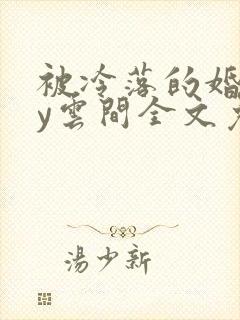 被冷落的婚
y雲間全文
湯少新